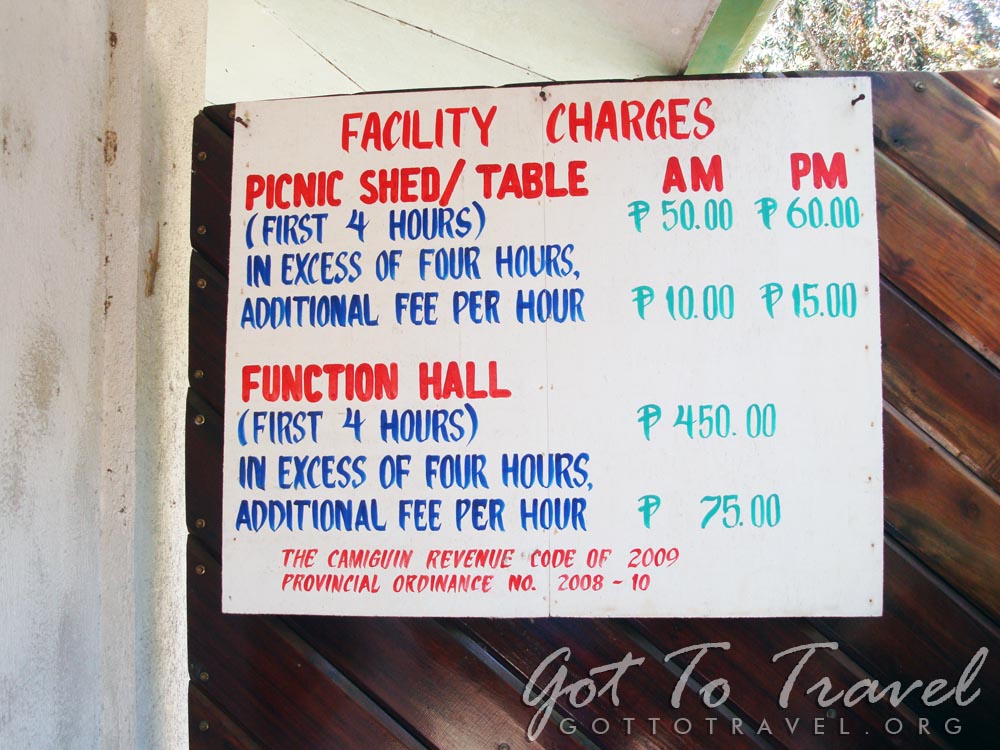 FACILITY CHARGES
PICNIC SHED/ TABLE AM PM
(FIRST 4 HOURS) ₱ 50.00 ₱ 60.00
IN EXCESS OF FOUR HOURS,
ADDITIONAL FEE PER HOUR ₱ 10.00 ₱ 15.00
FUNCTION HALL
(FIRST 4 HOURS) ₱ 450.00
IN EXCESS OF FOUR HOURS,
ADDITIONAL FEE PER HOUR ₱ 75.00
THE CAMIGUIN REVENUE CODE OF 2009
PROVINCIAL ORDINANCE NO. 2008 - 10
Got To Travel
GOTTOTRAVEL.ORG